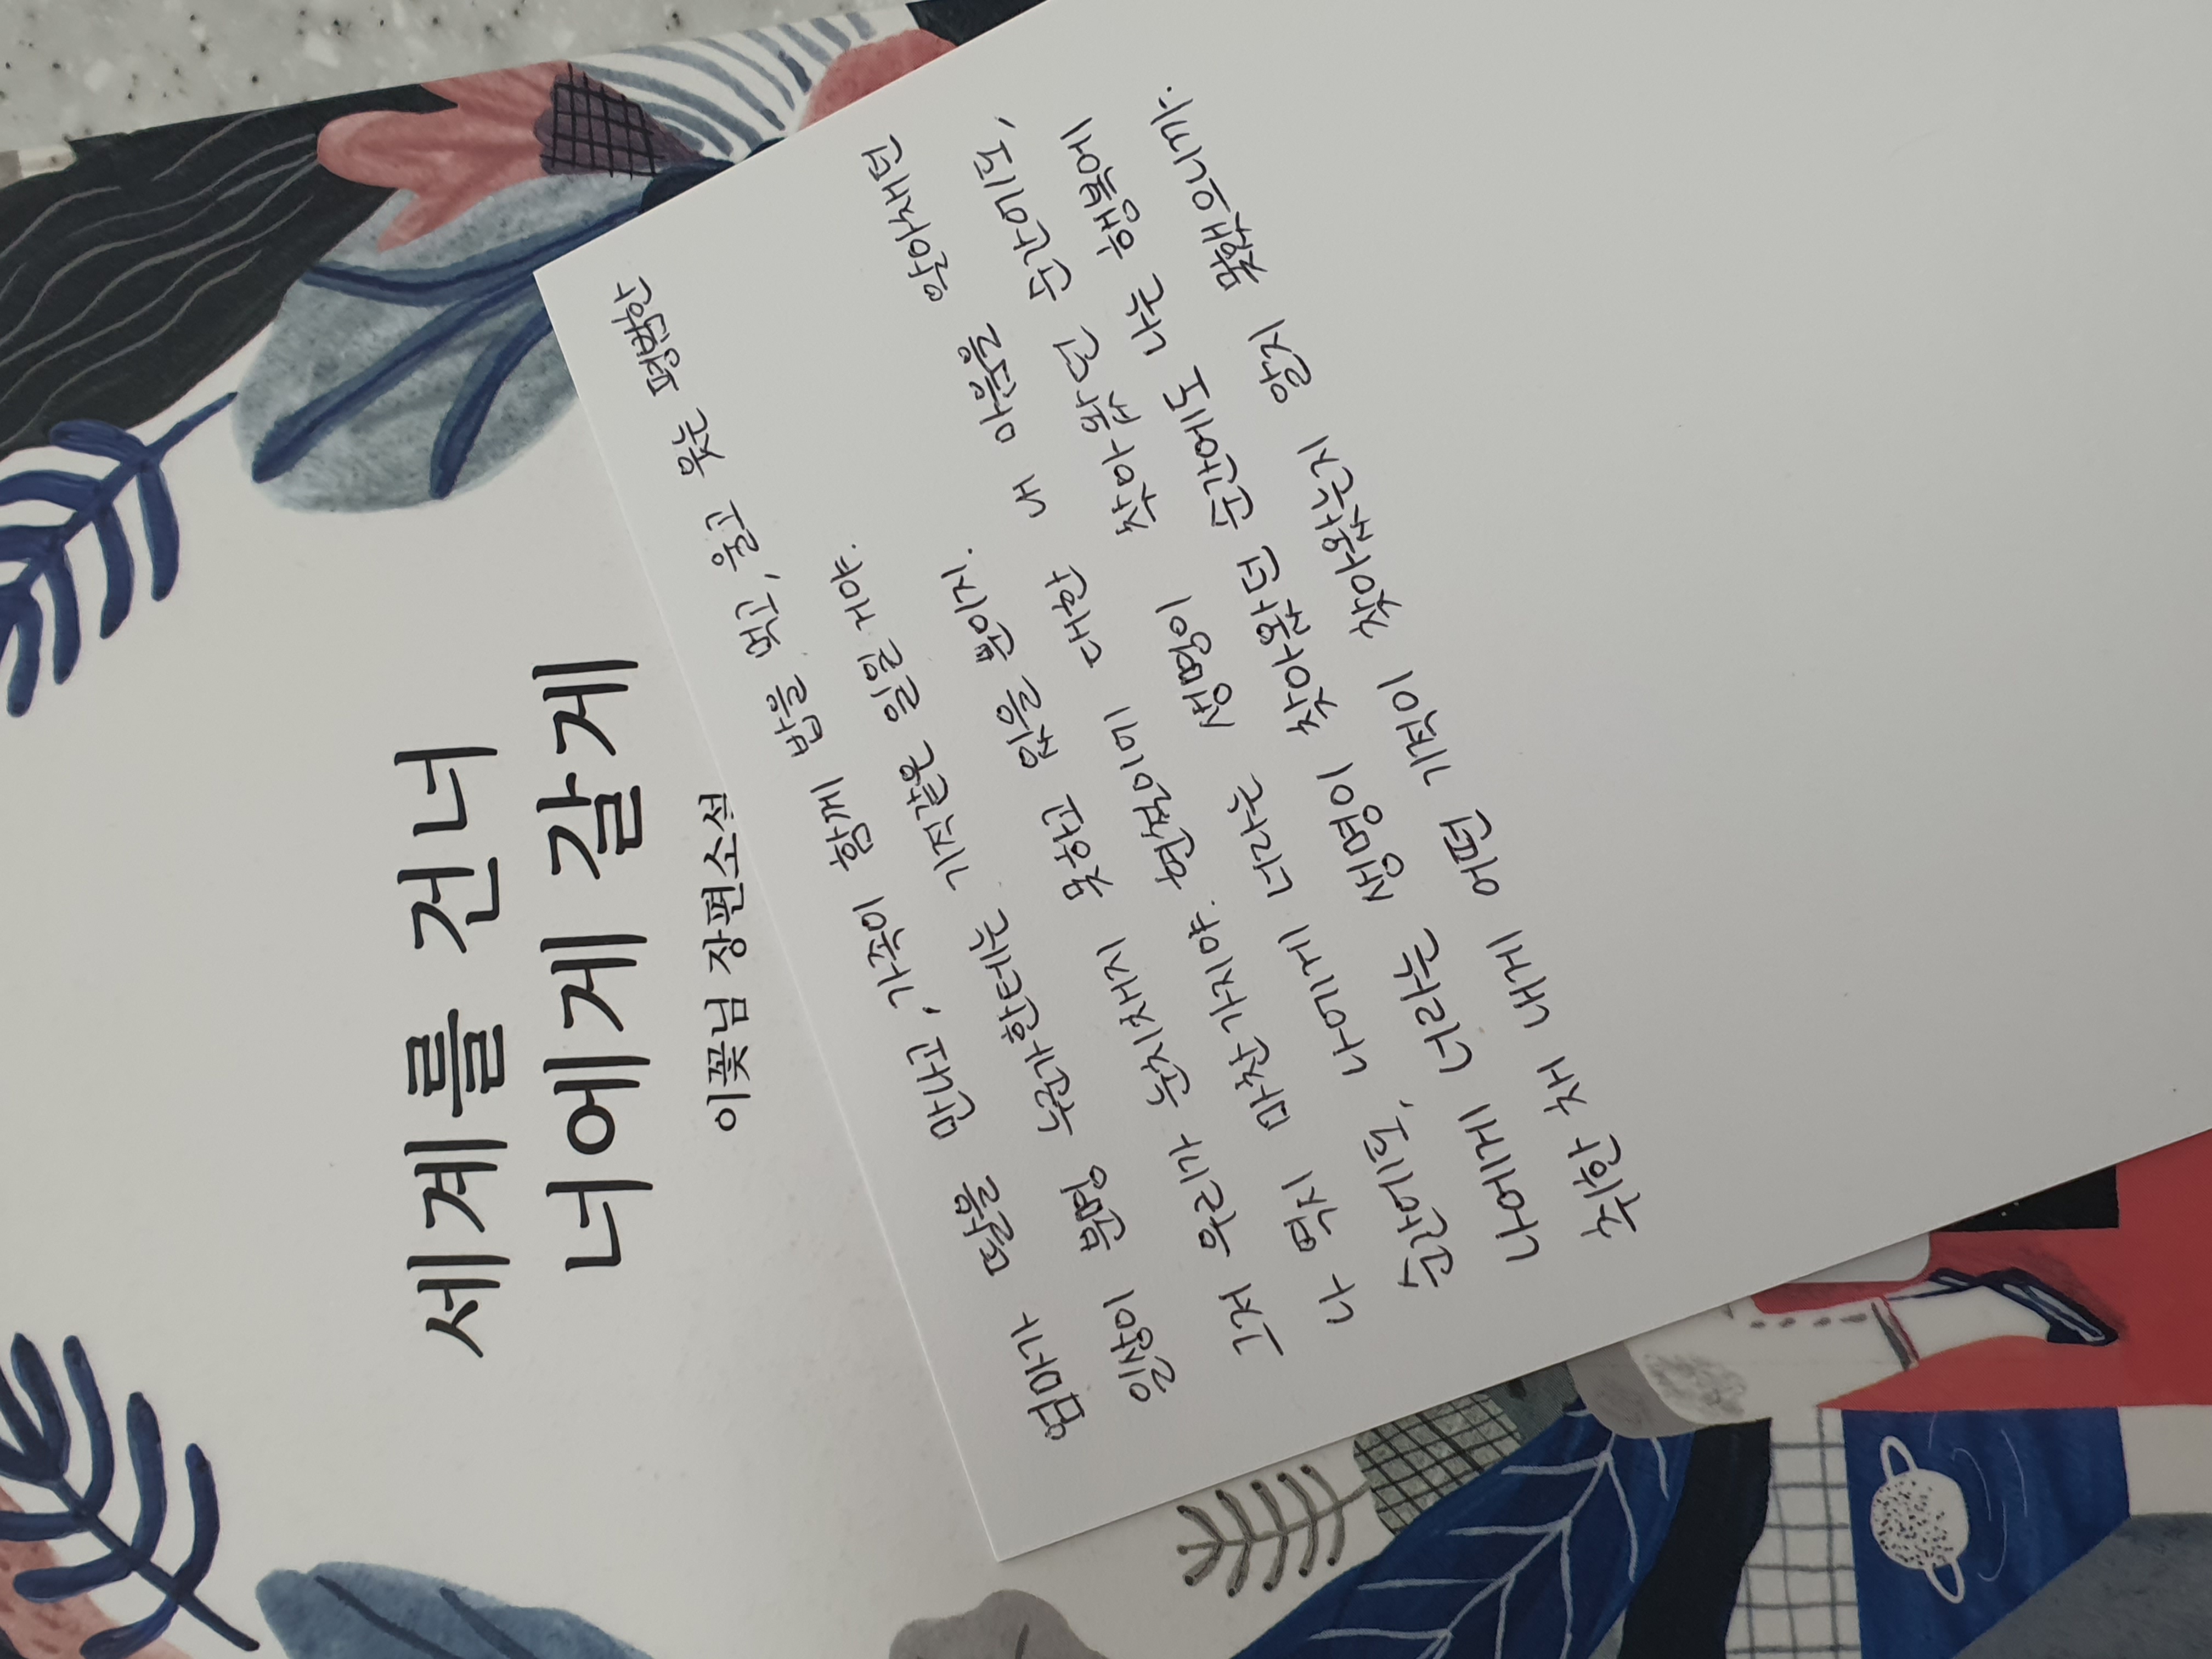 세계를 건너
너에게 갈게
이꽃님 장편소설
엄마가 딸을 만나고, 가족이 함께 밥을 먹고, 울고 웃는 평범한
일상이 분명 누군가한테는 기적같은 일일 거야.
그저 우리가 눈치채지 못하고 있을 뿐이지.
나 역시 마찬가지야. 현철이에 대한 내 마음을 알아채던
순간에도, 나에게 너라는 생명이 찾아왔던 순간에도,
나에게 너라는 생명이 찾아왔던 순간에도 나는 행복에
취한 채 내게 어떤 기적이 찾아왔는지 알지 못했으니까.